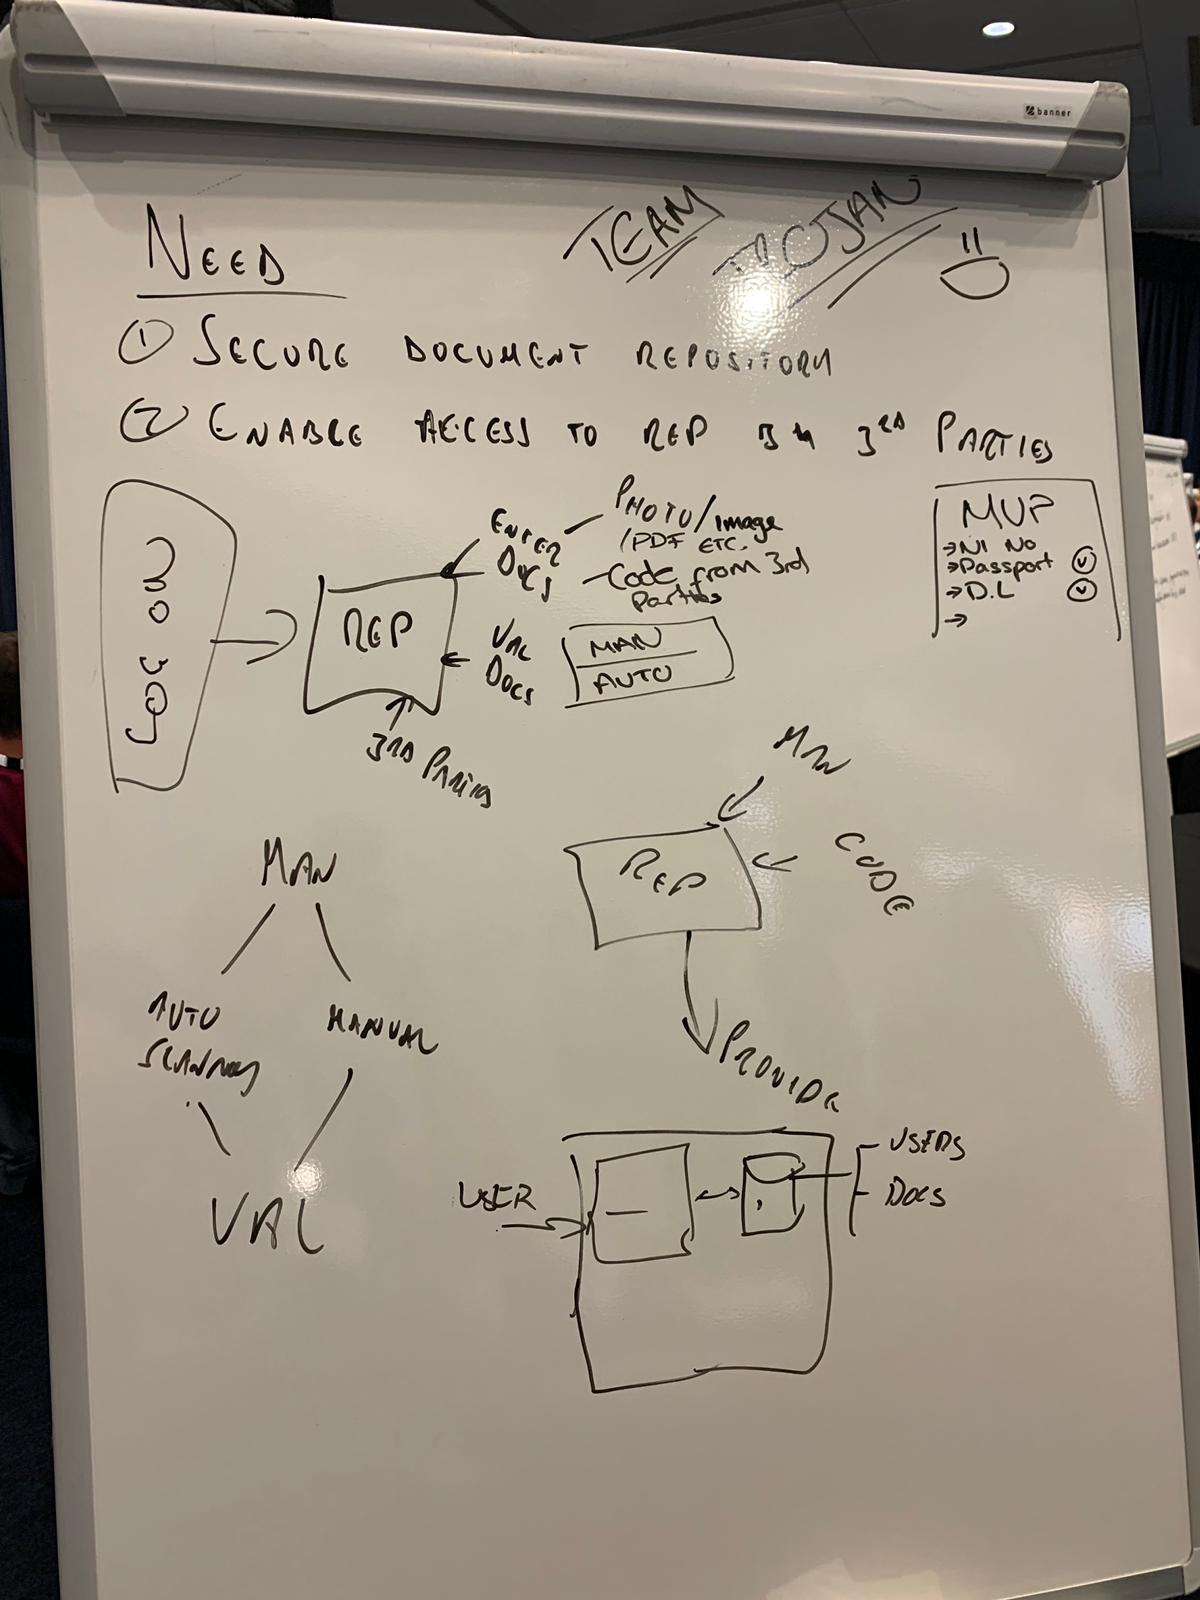 banner
TEAM
TROJAN
NEED
① SECURE DOCUMENT REPOSITORY
② ENABLE ACCESS TO REP 3RD PARTIES
LOG ON
REP
ENTER
DOCS
PHOTO/Image
/PDF ETC.
Code from 3rd
parties
VAL
DOCS
MAN
AUTO
3RD PARTIES
MVP
→NI No
→Passport
→D.L
→
MAN
AUTO
SCANNING
MANUAL
VAL
MAN
CODE
REP
PROVIDE
USER
USERS
DOCS